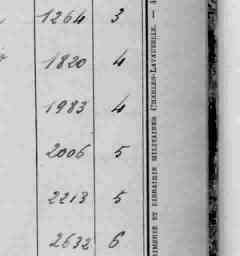 1264 3
1820 4
1983 4
2006 5
2213 5
2632 6
IMERIE ET LIBRAIRIE MILITAIRES CHARLES-LAVAUZELLE. —